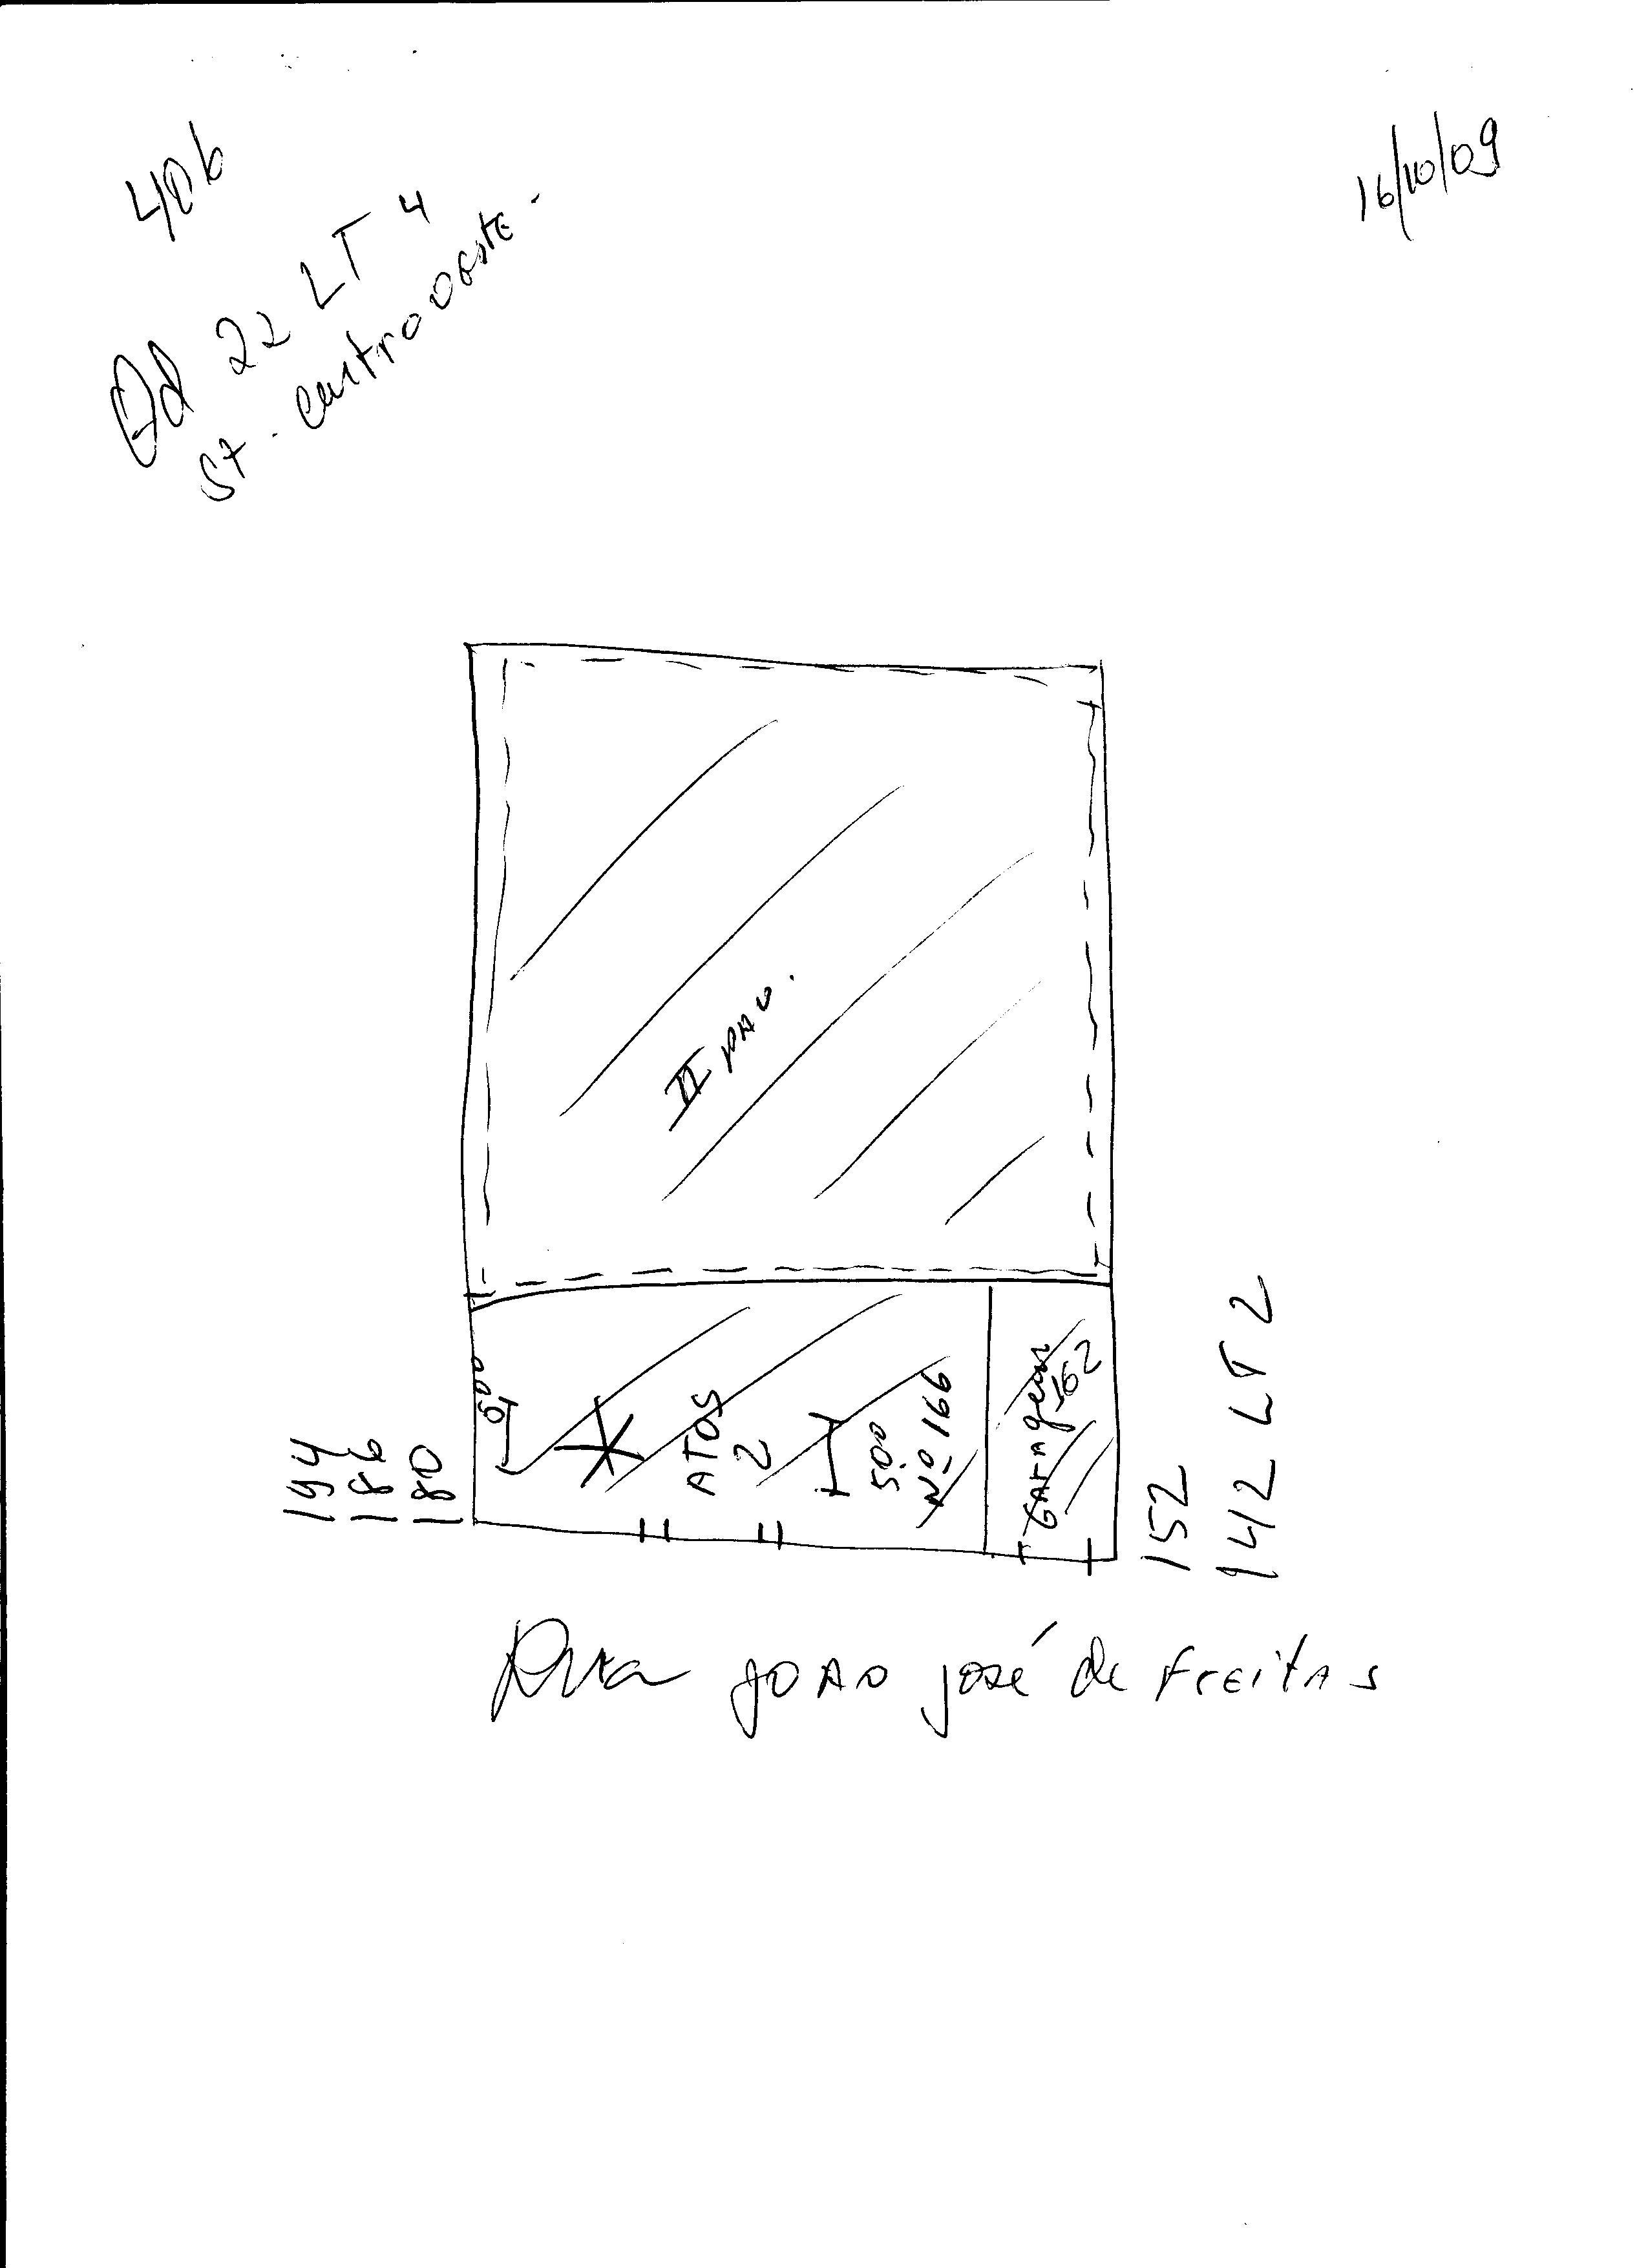 406
16/10/09
Qd 22 LT 4
St. Centro oeste.
II PAV.
5,00
ATOS
2
5,00
Nº 166
GARAgem
162
194
186
180
152
142 LT 2
Rua JOAO José de FREITAS